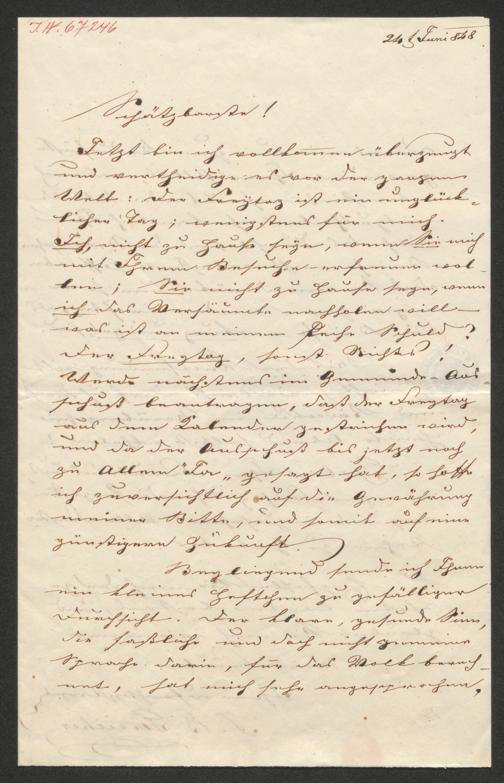 I.N. 67246
24t Juni 848
Schätzbarste!
Jetzt bin ich vollkommen überzeugt
und vertheidige es vor der ganzen
Welt: Der Freytag ist ein unglück-
licher Tag; wenigstens für mich.
Ich, nicht zu Hause seyn, wenn Sie mich
mit Ihrem Besuche erfreuen wol-
len; Sie nicht zu Hause seyn, wenn
ich das Versäumte nachholen will –
was ist an meinem Peche Schuld?
Der Freytag, sonst Nichts!
Werde nächstens im Gemeinde-Aus
schuß beantragen, daß der Freytag
aus dem Kalender gestrichen wird,
und da der Ausschuß bis jetzt noch
zu Allem "Ja" gesagt hat, so hoffe
ich zuversichtlich auf die Gewährung
meiner Bitte, und somit auf eine
günstigere Zukunft.
Beyliegend sende ich Ihnen
ein kleines Heftchen zu gefälliger
Durchsicht. Der klare, gesunde Sinn,
die faßliche und doch nicht gemeine
Sprache darin, für das Volk berech-
net, hat mich sehr angesprochen,